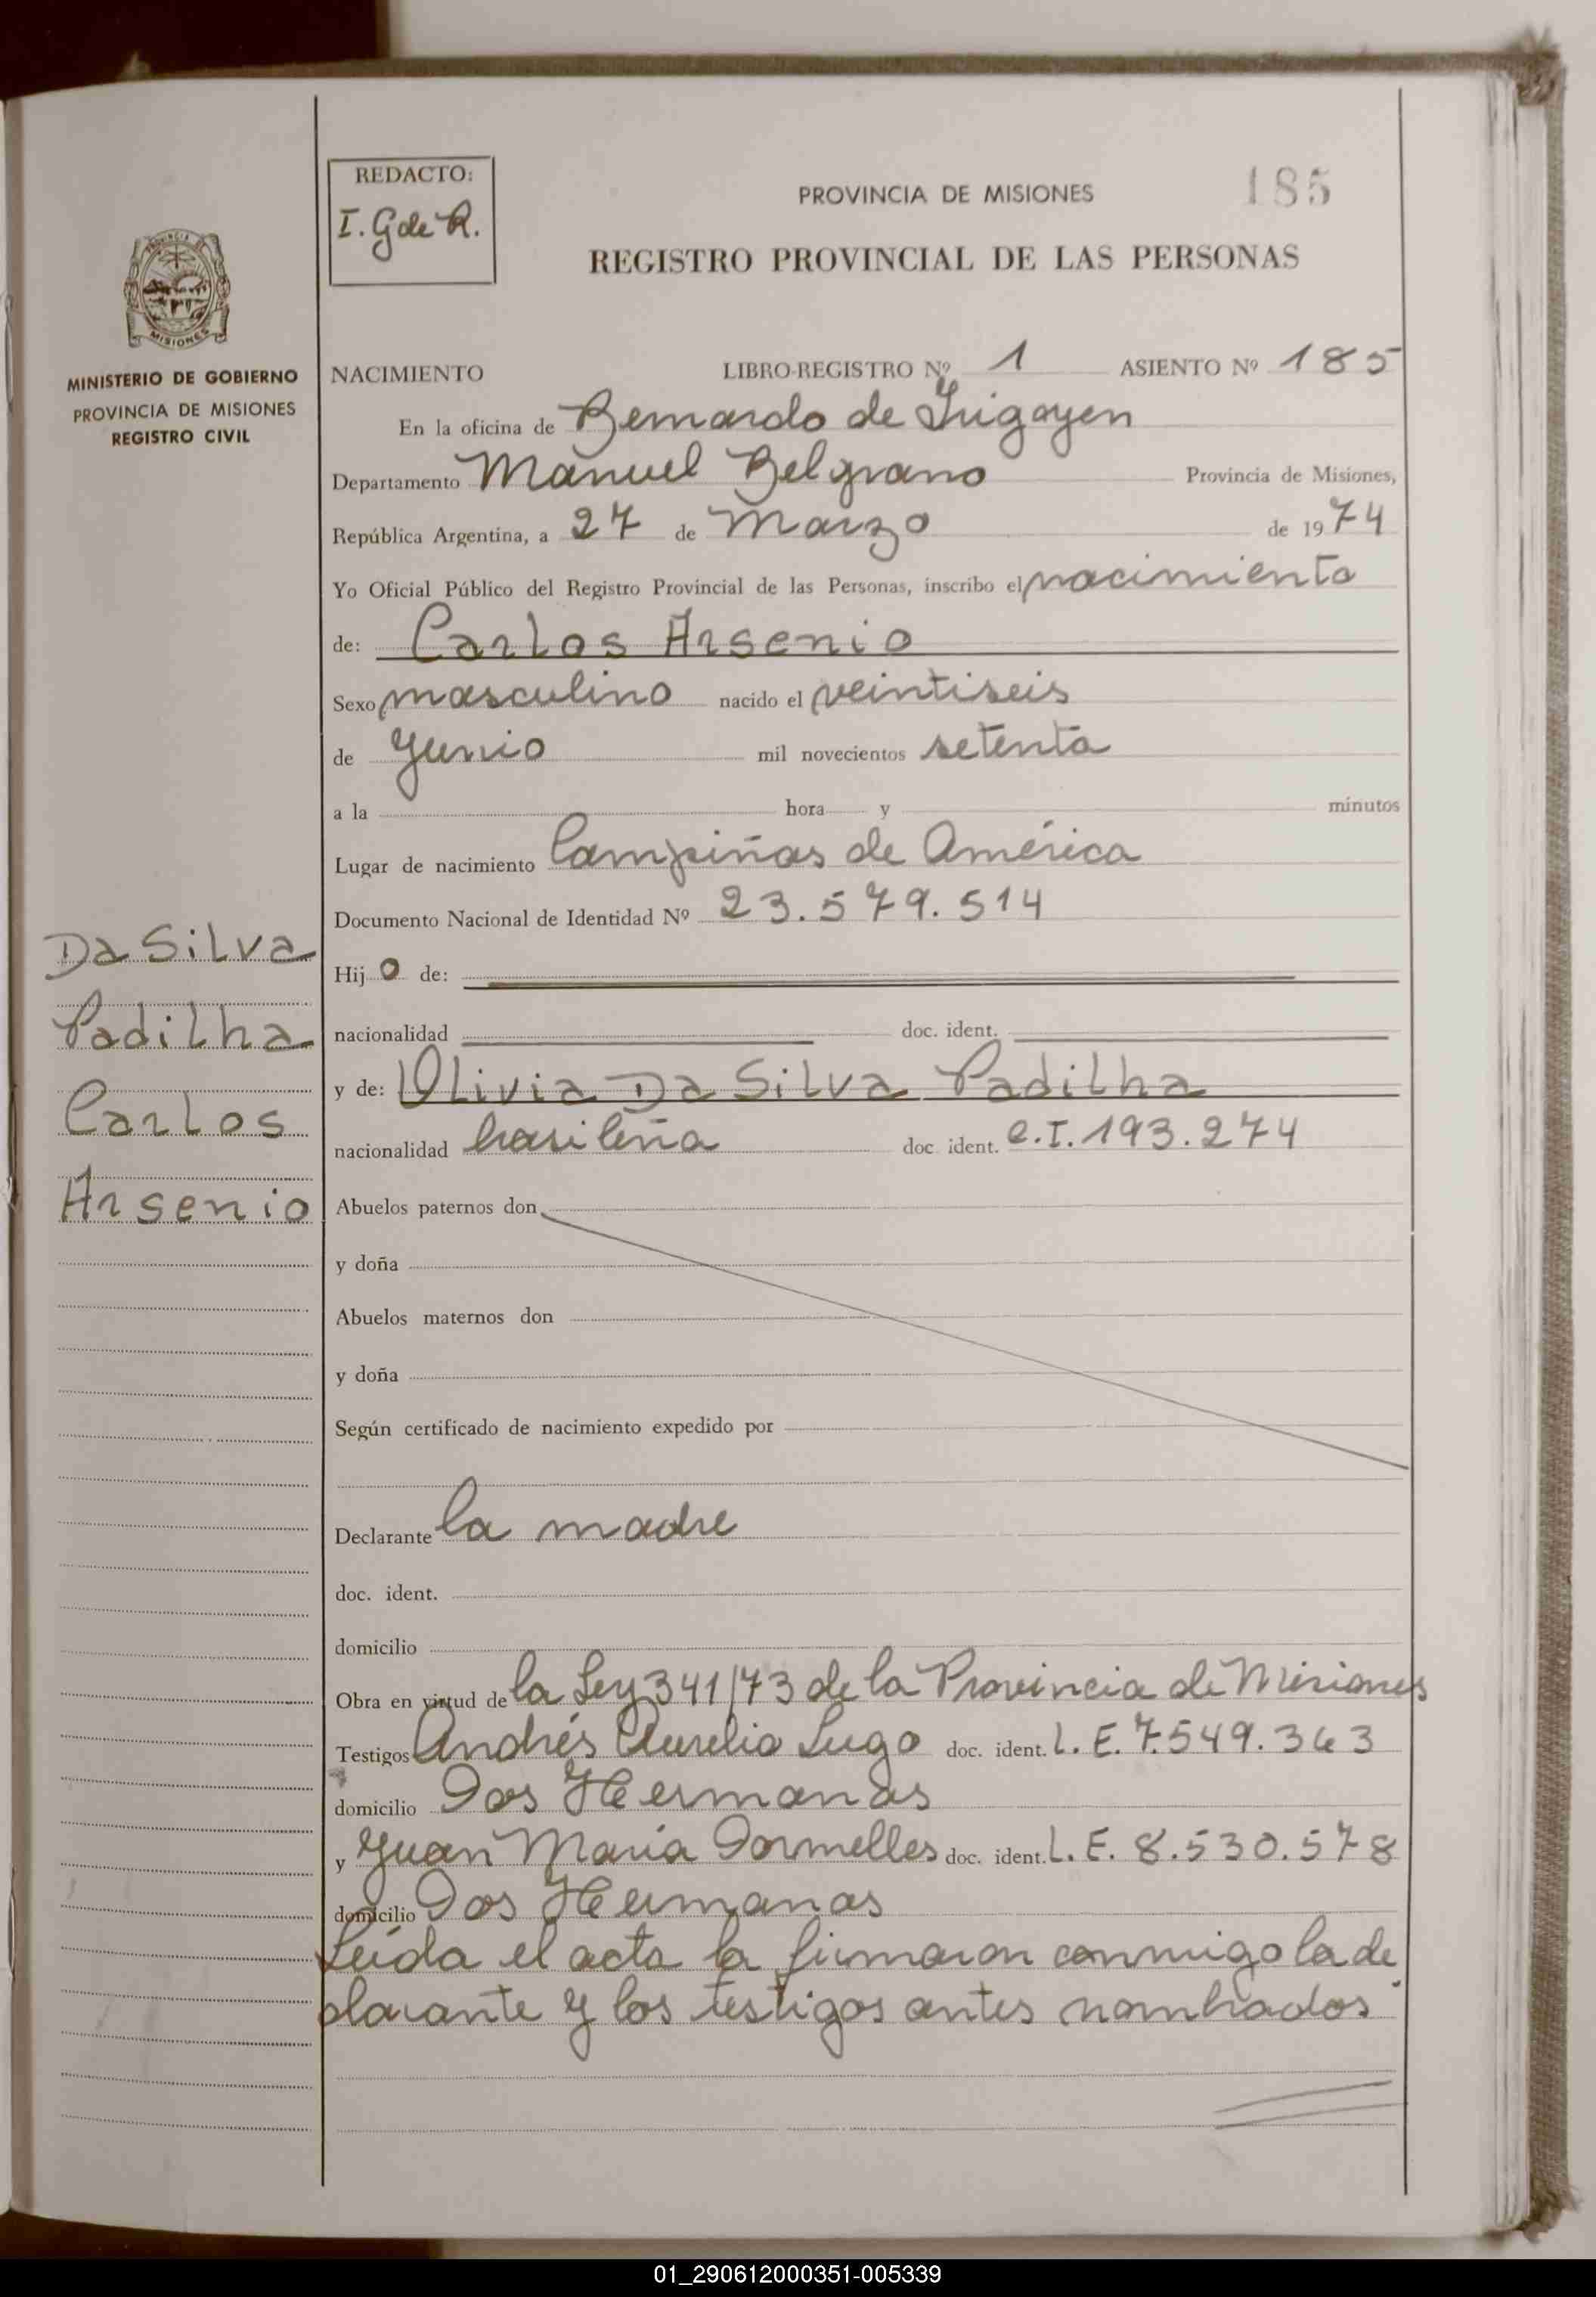 REDACTO:
I. G de R.
PROVINCIA DE MISIONES
185
REGISTRO PROVINCIAL DE LAS PERSONAS
PROVINCIA DE
MISIONES
MINISTERIO DE GOBIERNO
PROVINCIA DE MISIONES
REGISTRO CIVIL
NACIMIENTO LIBRO-REGISTRO Nº 1 ASIENTO Nº 185
En la oficina de Bernardo de Irigoyen
Departamento Manuel Belgrano Provincia de Misiones,
República Argentina, a 27 de Marzo de 1974
Yo Oficial Público del Registro Provincial de las Personas, inscribo el nacimiento
de: Carlos Arsenio
Sexo masculino nacido el veintiseis
de Junio mil novecientos setenta
a la hora y minutos
Lugar de nacimiento Campiñas de América
Documento Nacional de Identidad Nº 23.579.514
Da Silva
Padilha
Carlos
Arsenio
Hijo de:
nacionalidad doc. ident.
y de: Olivia Da Silva Padilha
nacionalidad brasileña doc. ident. C.I. 193.274
Abuelos paternos don
y doña
Abuelos maternos don
y doña
Según certificado de nacimiento expedido por
Declarante la madre
doc. ident.
domicilio
Obra en virtud de la Ley 341/73 de la Provincia de Misiones
Testigos Andrés Aurelio Lugo doc. ident. L.E. 7.549.363
domicilio Dos Hermanas
y Juan María Dornelles doc. ident. L.E. 8.530.578
domicilio Dos Hermanas
Leída el acta la firmaron conmigo la de
clarante y los testigos antes nombrados
01_290612000351-005339